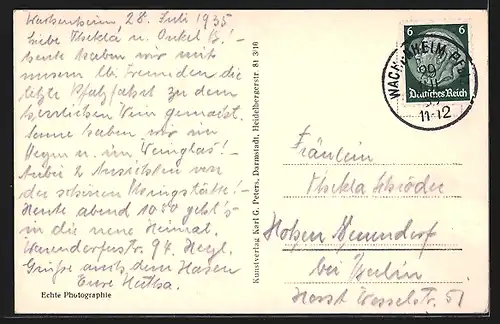 Wachenheim 28. Juli 1935
Liebe Thekla u. Onkel B.! –
heute haben wir mit
unsern lb. Freunden die
letzte Pfalzfahrt zu dem
herrlichen Wein gemacht.
Sonne haben wir im
u. im Weinglas! –
Anbei 2 Ansichten von
der schönen
Heute abend 10 50 geht's
in die neue Heimat.
97.
Grüße auch dem Hasen
Eure
Echte Photographie
Kunstverlag Karl G. Peters, Darmstadt, Heidelbergerstr. 81 3/16
6 6
Deutsches Reich
WACHENHEIM
11-12
Fräulein
Thekla Schröder
Hohen Neuendorf
bei Berlin
Horst Wesselstr. 51